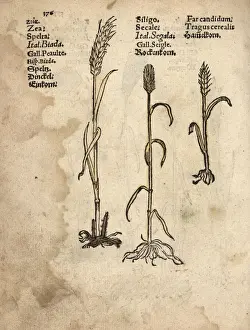 176
Zea:
Spelta,
Ital. Biada.
Gall. Peaulte.
Speltz.
Dinckel:
Einkorn.
Siligo.
Secale:
Ital. Segala:
Gall. Seigle.
Rockenkorn.
Far candidum:
Tragus cerealis